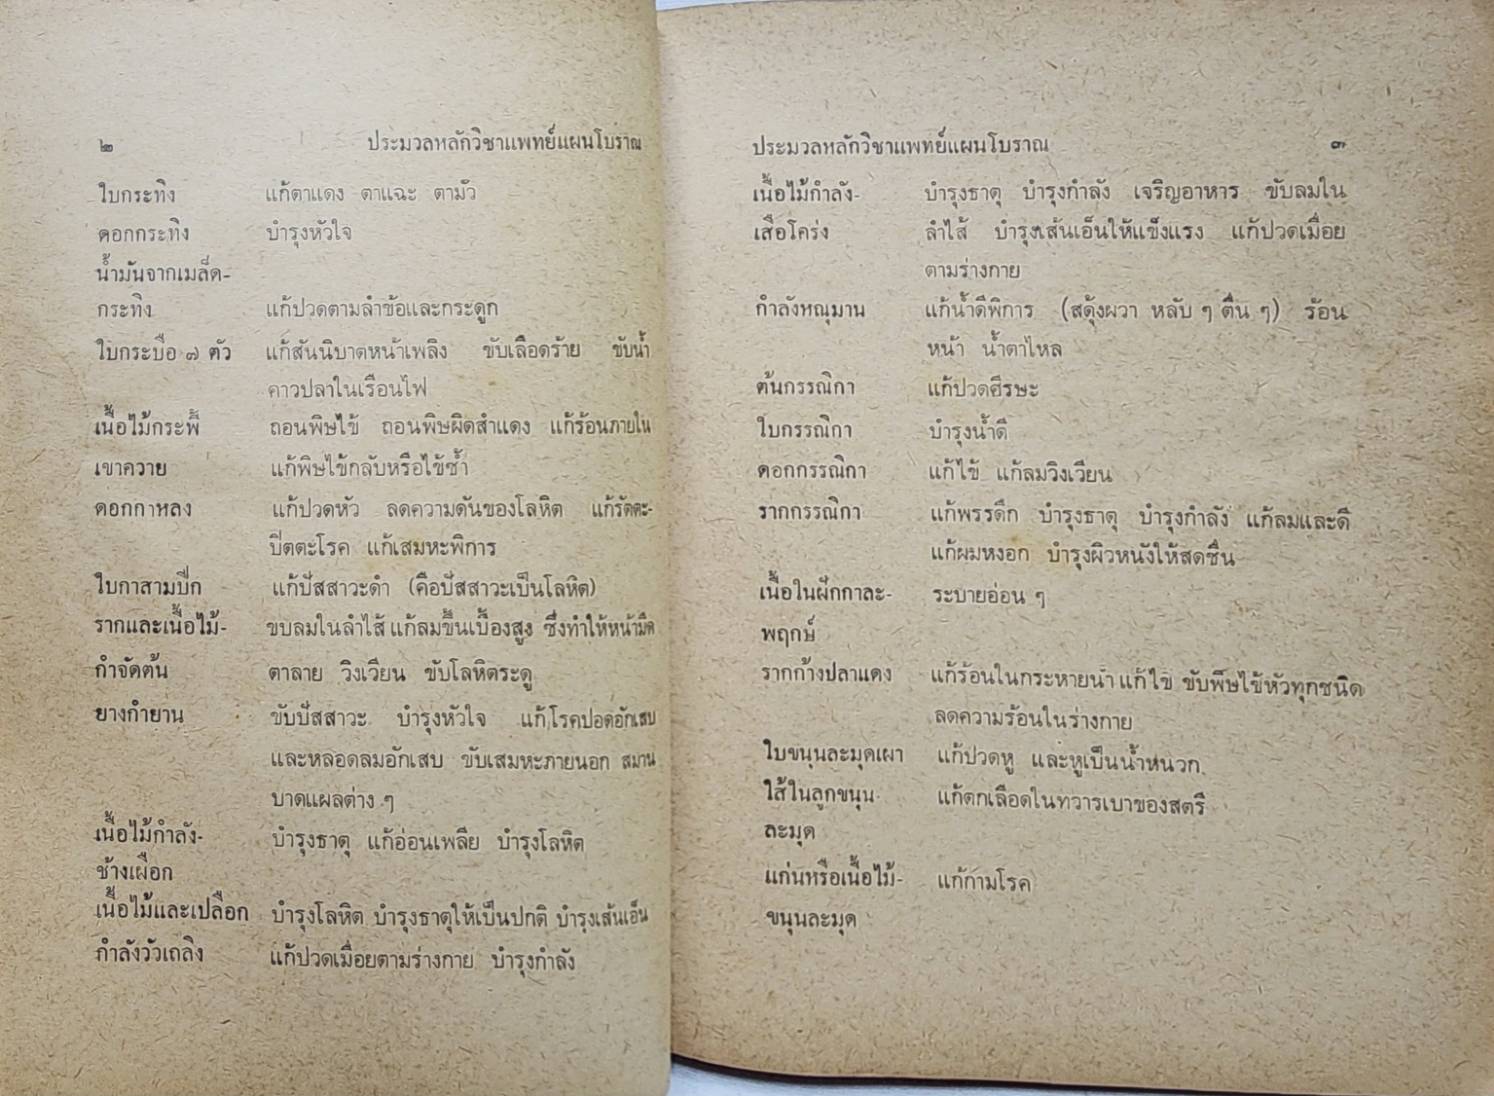 ๒ ประมวลหลักวิชาแพทย์แผนโบราณ
ใบกระทิง แก้ตาแดง ตาแฉะ ตามัว
ดอกกระทิง บำรุงหัวใจ
น้ำมันจากเมล็ด-
กระทิง แก้ปวดตามลำข้อและกระดูก
ใบกระบือ ๗ ตัว แก้สันนิบาตหน้าเพลิง ขับเลือดร้าย ขับน้ำ
คาวปลาในเรือนไฟ
เนื้อไม้กระพี้ ถอนพิษไข้ ถอนพิษผิดสำแดง แก้ร้อนภายใน
เขาควาย แก้พิษไข้กลับหรือไข้ซ้ำ
ดอกกาหลง แก้ปวดหัว ลดความดันของโลหิต แก้รัตตะ-
ปิตตะโรค แก้เสมหะพิการ
ใบกาสามปีก แก้ปัสสาวะดำ (คือปัสสาวะเป็นโลหิต)
รากและเนื้อไม้- ขบลมในลำไส้ แก้ลมขึ้นเบื้องสูง ซึ่งทำให้หน้ามืด
กำจัดต้น ตาลาย วิงเวียน ขับโลหิตระดู
ยางกำยาน ขับปัสสาวะ บำรุงหัวใจ แก้โรคปอดอักเสบ
และหลอดลมอักเสบ ขับเสมหะภายนอก สมาน
บาดแผลต่าง ๆ
เนื้อไม้กำลัง- บำรุงธาตุ แก้อ่อนเพลีย บำรุงโลหิต
ช้างเผือก
เนื้อไม้และเปลือก บำรุงโลหิต บำรุงธาตุให้เป็นปกติ บำรุงเส้นเอ็น
กำลังวัวเถลิง แก้ปวดเมื่อยตามร่างกาย บำรุงกำลัง
ประมวลหลักวิชาแพทย์แผนโบราณ ๓
เนื้อไม้กำลัง- บำรุงธาตุ บำรุงกำลัง เจริญอาหาร ขับลมใน
เสือโคร่ง ลำไส้ บำรุงเส้นเอ็นให้แข็งแรง แก้ปวดเมื่อย
ตามร่างกาย
กำลังหณุมาน แก้น้ำดีพิการ (สดุ้งผวา หลับ ๆ ตื่น ๆ) ร้อน
หน้า น้ำตาไหล
ต้นกรรณิกา แก้ปวดศีรษะ
ใบกรรณิกา บำรุงน้ำดี
ดอกกรรณิกา แก้ไข้ แก้ลมวิงเวียน
รากกรรณิกา แก้พรรดึก บำรุงธาตุ บำรุงกำลัง แก้ลมและดี
แก้ผมหงอก บำรุงผิวหนังให้สดชื่น
เนื้อในฝักกาละ- ระบายอ่อน ๆ
พฤกษ์
รากก้างปลาแดง แก้ร้อนในกระหายน้ำ แก้ไข้ ขับพิษไข้หัวทุกชนิด
ลดความร้อนในร่างกาย
ใบขนุนละมุดเผา แก้ปวดหู และหูเป็นน้ำหนวก
ใส้ในลูกขนุน แก้ตกเลือดในทวารเบาของสตรี
ละมุด
แก่นหรือเนื้อไม้- แก้กามโรค
ขนุนละมุด